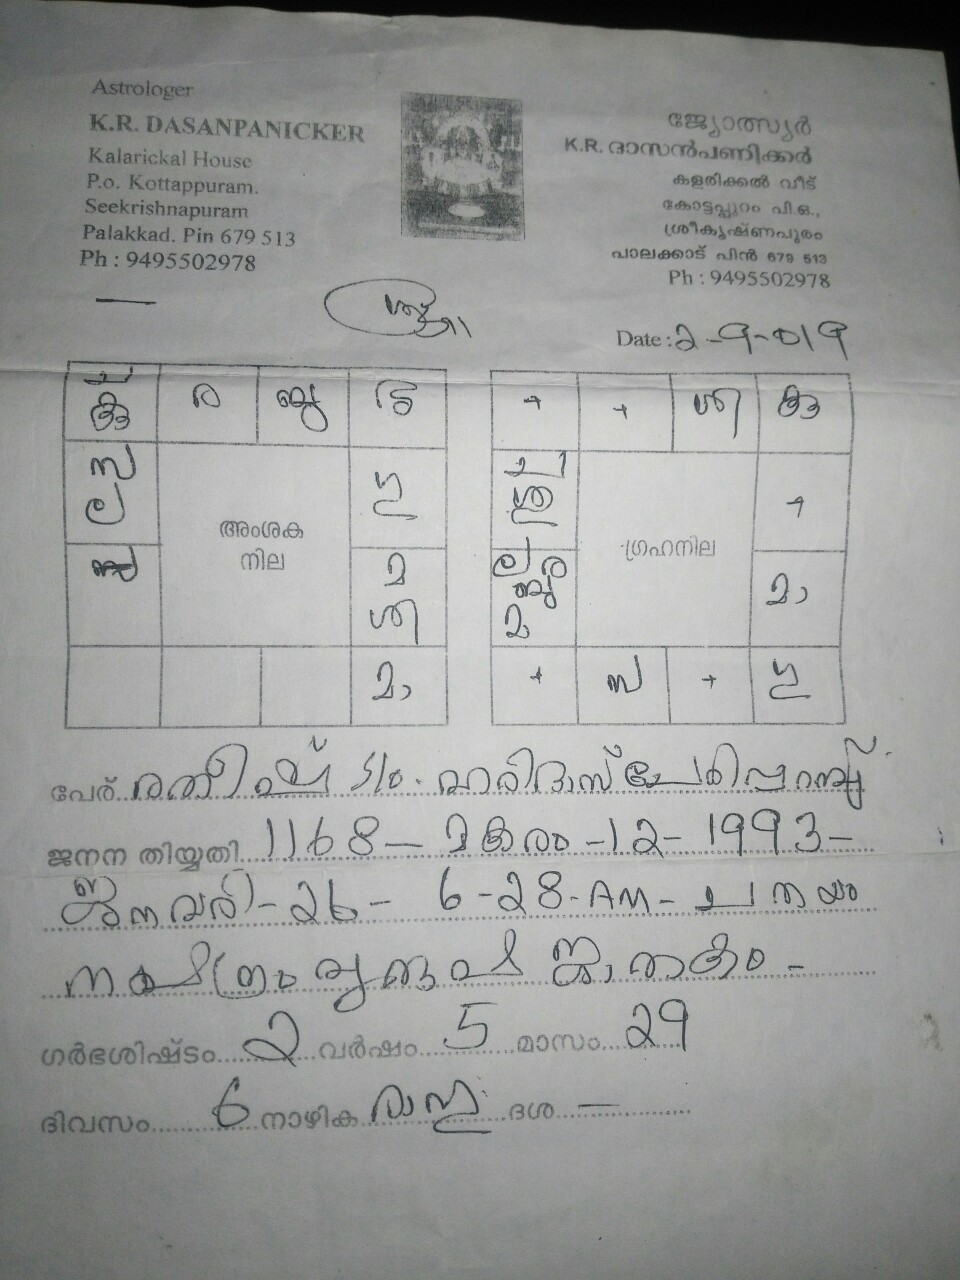 Astrologer
K.R. DASANPANICKER
Kalarickal House
P.o. Kottappuram.
Seekrishnapuram
Palakkad. Pin 679 513
Ph : 9495502978
ജ്യോത്സ്യർ
K.R. ദാസൻപണിക്കർ
കളരിക്കൽ വീട്
കോട്ടപ്പുറം പി.ഒ.,
ശ്രീകൃഷ്ണപുരം
പാലക്കാട് പിൻ 679 513
Ph : 9495502978
Date : 2-9-019
ര ബു
ല
മ
ശി
മാ
അംശക
നില
+ + ശി
+
ല
മ
മാ
+ സ + ഗു
ഗ്രഹനില
പേര് രതീഷ് S/o. ഹരിദാസ്
ജനന തിയ്യതി 1168 - മകരം - 12 - 1993 -
ജനുവരി - 26 - 6 - 28 - AM -
നക്ഷത്രം പുരുഷ ജാതകം -
ഗർഭശിഷ്ടം 2 വർഷം 5 മാസം 29
ദിവസം 6 നാഴിക രാഹു ദശ —